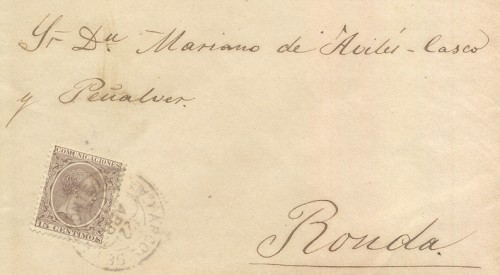 Sr Dn Mariano de Avilés-Casco
y Peñalver.
COMUNICACIONES
15 CENTIMOS
22
ABR
Ronda.